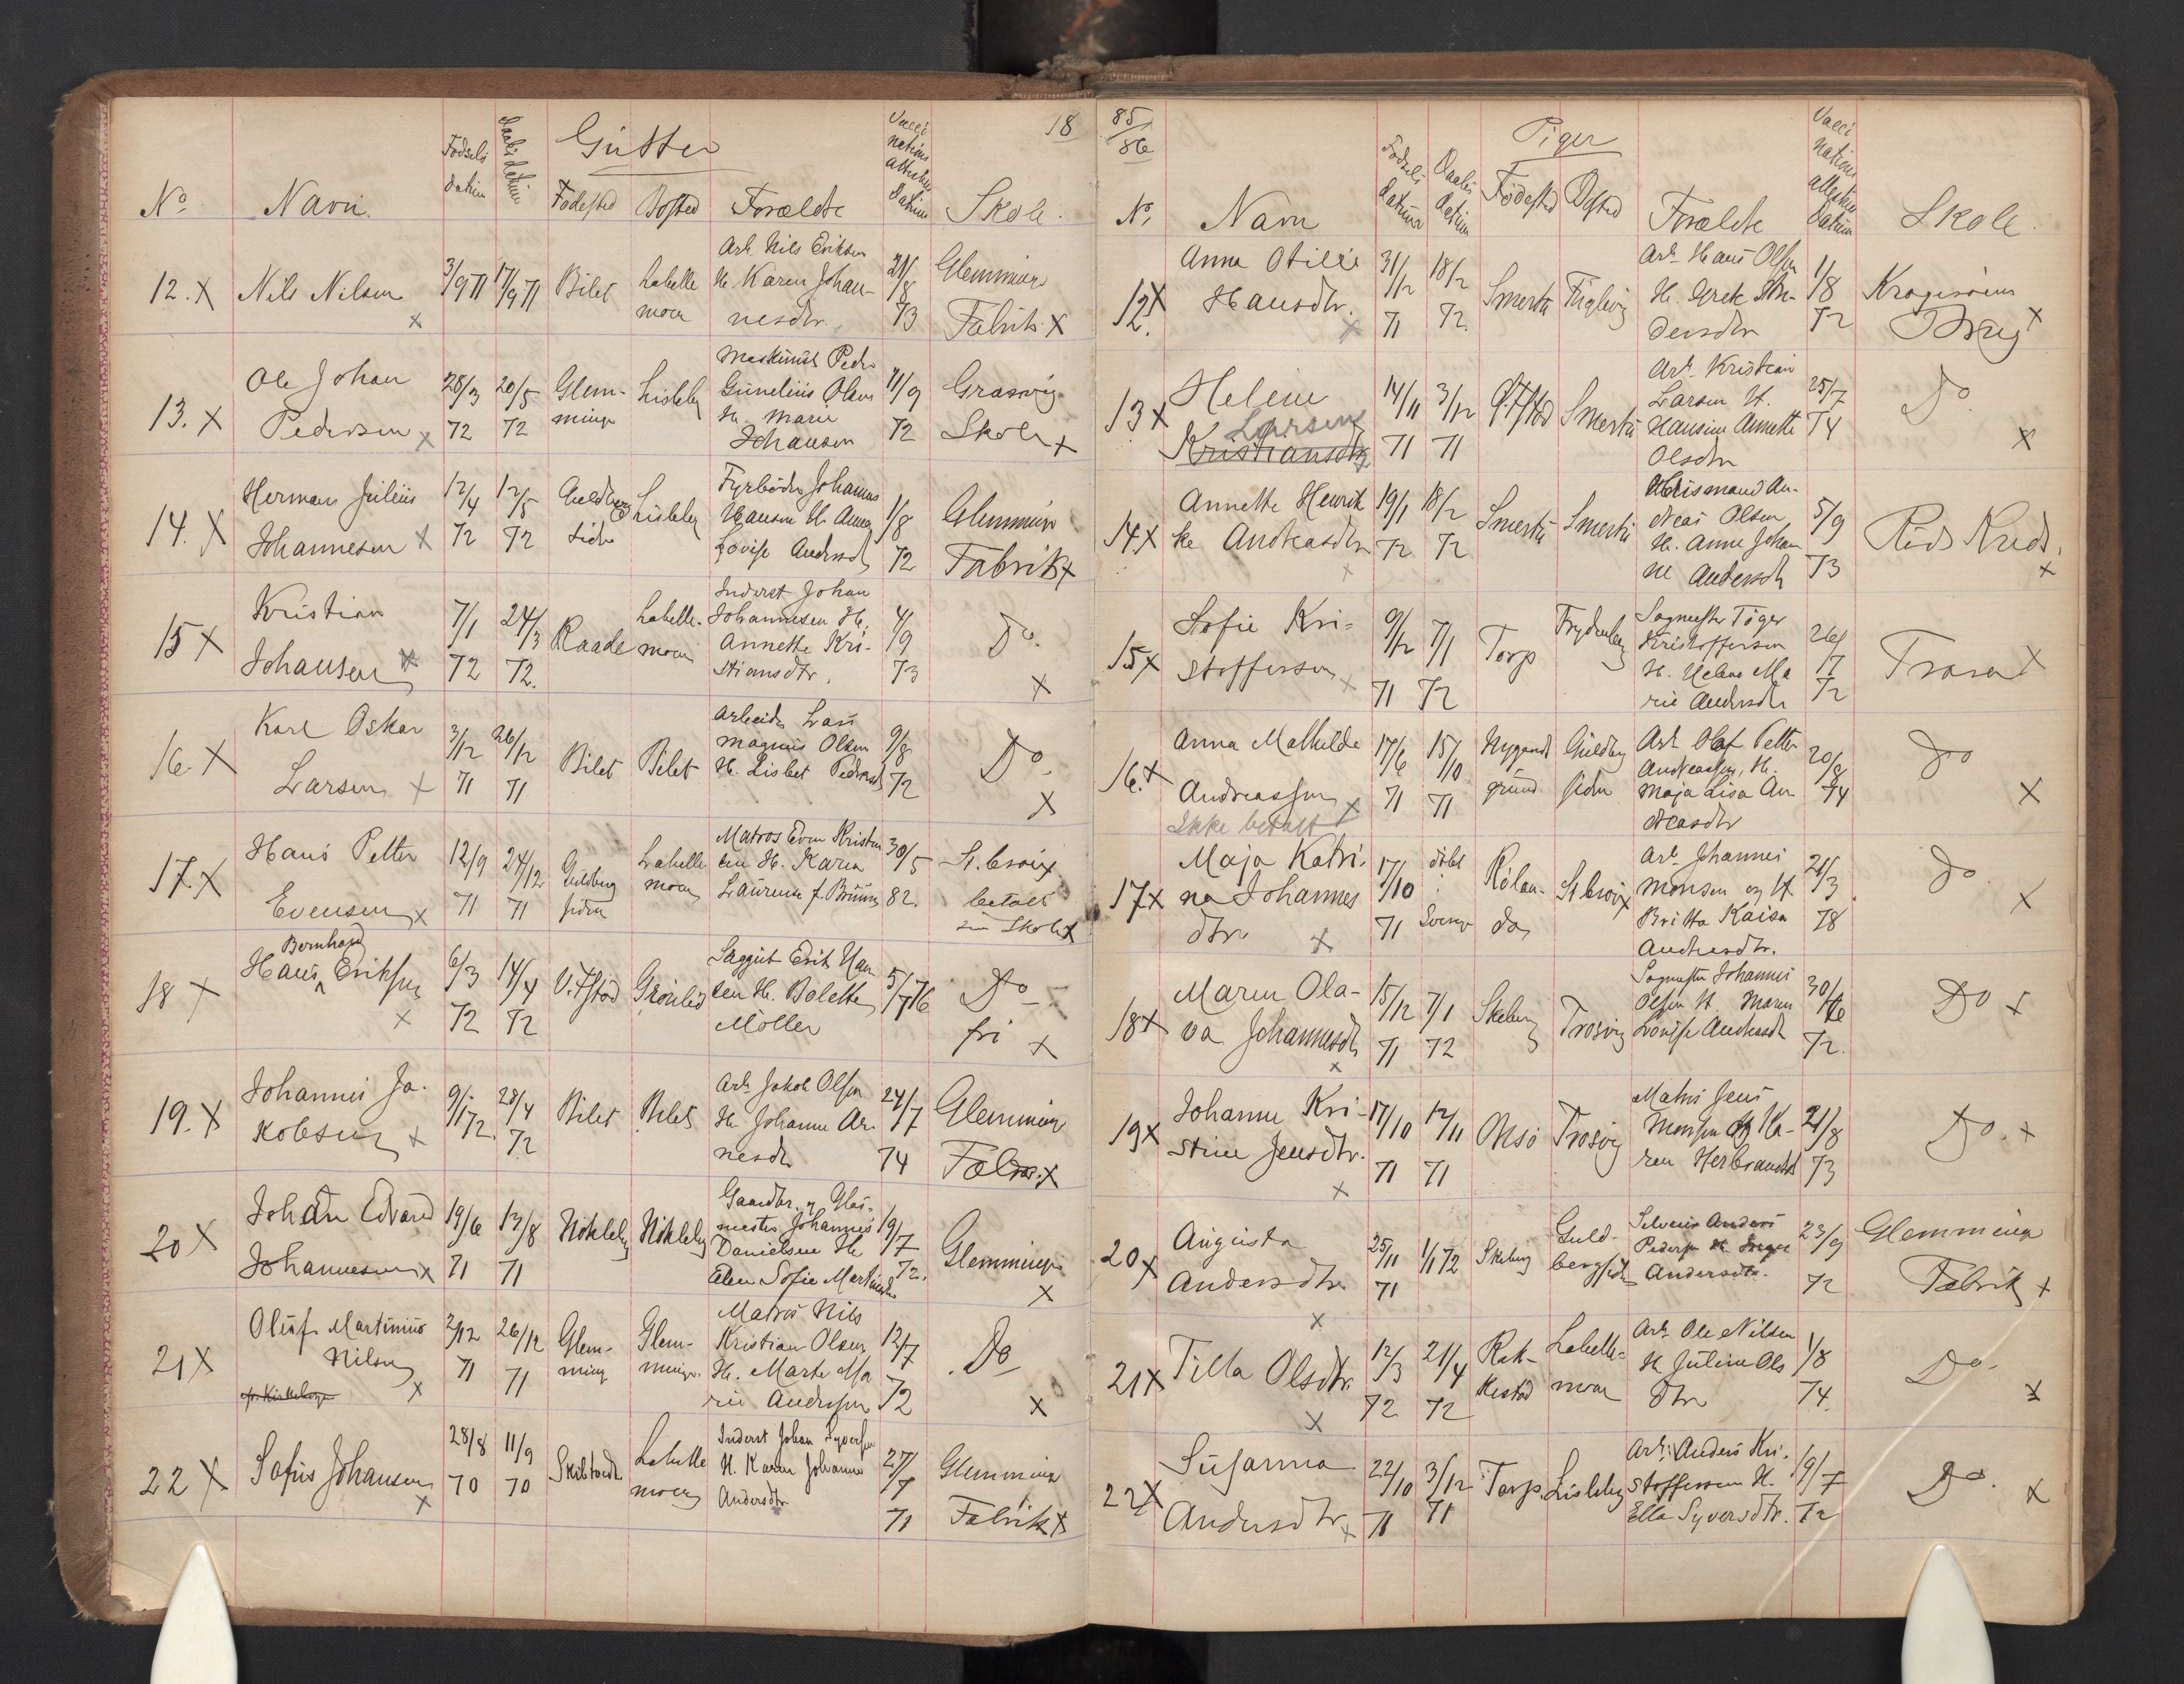 Gutter
18
No
Navn.
Födsels datum
Daabs datum
Födested
Bosted
Forældre
Vaccinations attestens Datum
Skole.
12. X Nils Nilsen X
3/9 71
17/9 71
Bilet
Labellemoen
Arb. Nils Eriksen
H. Karen Johan-
nesdtr.
21/8 73
Glemminge
Fabrik X
13. X Ole Johan
Pedersen X
28/3 72
20/5 72
Glem-
minge
Lisleby
Maskinist Peder
Gunelius Olsen
H. Marie
Johansen
11/9 72
Græsvig
Skole X
14. X Herman Julius
Johannesen X
12/4 72
12/5 72
Guldberg
siden
Lisleby
Fyrböder Johannes
Hansen H. Anna
Lovise Andersd
1/8 72
Glemminge
Fabrik X
15 X Kristian
Johansen X
7/1 72
24/3 72.
Raade
Labelle-
moen
Inderst Johan
Johannesen H.
Annette Kri-
stiansdtr.
4/9 73
Do.
X
16. X Karl Oskar
Larsen X
3/12 71
26/12 71
Bilet
Bilet
Arbeider Lars
Magnus Olsen
H. Lisbet Pedersd
9/8 72
Do.
X
17. X Hans Petter
Evensen X
12/9 71
24/12 71
Guldberg
siden
Labelle
moen
Matros Even Kristen
sen H. Karen
Laurense f. Bruun
30/5 82.
St. Croix
betalt
sin Skole X
18 X Hans Bernhard Eriksen
X
6/3 72
14/4 72
V. Fstöd
Grönlid
Saggut Erik Han
sen H. Bolette
Möller
5/7 76
Do
fri X
19. X Johannes Ja-
kobsen X
9/1 72.
28/4 72
Bilet
Bilet
Arb. Jakob Olsen
H. Johanne Ar-
nesdtr
24/7 74
Glemminge
Fabr. X
20 X Johan Edvard
Johannesen X
19/6 71
13/8 71
Nökleby
Nökleby
Gaardbr. og Glas-
mester Johannes
Danielsen H.
Elen Sofie Martinsdtr
19/7 72.
Glemminge
X
21 X Oluf Martinius
Nilsen
X
2/12 71
26/12 71
Glem-
minge
Glem-
minge.
Matros Nils
Kristian Olsen
H. Marte Ma
rie Andersen
12/7 72
Do
X
22 X Sofus Johansen
X
28/8 70
11/9 70
Labelle
moen
Inderst Johan Syversen
H. Karen Johanne
Andersdtr
27/7 71
Glemminge
Fabrik X
85/86
Piger
No.
Navn
Födsels datum
Daabs datum
Födested
Bosted
Forældre
Vaccinations attestens datum
Skole.
12. X Anna Otilie
Hansdtr.
X
31/12 71
18/2 72.
Smertu
Arb. Hans Olsen
H. Grete An-
dersdtr
1/8 72
Kragerøens
Brug X
13 X Helene
Larsen
Kristiansdtr
14/11 71
3/12 71
Smertu
Arb. Kristian
Larsen H.
Hansine Annette
Olsdtr
25/7 74
Do
X
14 X Annette Henrik
ke Andreasdtr
X
19/1 72
18/2 72
Smertu
Smertu
Huismand An-
dreas Olsen
H. Anne Johan
ne Andersdtr
5/9 73
Röds Kreds.
X
15 X Sofie Kri-
stoffersen X
9/12 71
7/1 72
Torp
Frydenberg
Sagmester Töger
Kristoffersen
H. Helene Ma
rie Andersdtr
26/7 72
Trara X
16. X Anna Mathilde
Andreassen X
Ikke betalt
17/6 71
15/10 71
Nygaards
grund
Guldberg
siden
Arb. Olaf Petter
Andreassen, H.
Maja Lisa An
dreasdtr
20/8 74
Do
X
17 X Maja Katri-
na Johannes
dtr X
17/10 71
döbt
i
Sverige
Rölan-
da
St Croix
Arb. Johannes
Monsen og H.
Britta Kaisa
Andreasdtr.
21/3 78
Do
X
18 X Maren Ola-
va Johannesdtr
X
15/12 71
7/1 72
Skeberg
Trosvig
Sagmester Johannes
Olsen H. Maren
Lovise Andreasd
30/ 72.
Do X
19 X Johanne Kri-
stine Jensdtr.
X
17/10 71
12/11 71
Onsö
Trosvig
Matros Jens
Monsen og Ka-
ren Herbrandsd
21/8 73
Do. X
20 X Augusta
Andersdtr.
X
25/11 71
1/1 72
Skeberg
Guld-
bergsiden
Selveier Anders
Pedersen H. Inger
Andersdtr.
23/9 72
Glemminge
Fabrik X
21 X Tilla Olsdtr.
X
12/3 72
21/4 72
Rak-
kestad
Labelle-
moen
Arb. Ole Nilsen
H. Juline Ols
dtr
1/8 74.
Do
X
22 X Susanna
Andersdtr X
22/10 71
3/12 71
Torp.
Lisleby
Arb. Anders Kri-
stoffersen H.
Ella Syversdtr.
19/7 72
Do. X